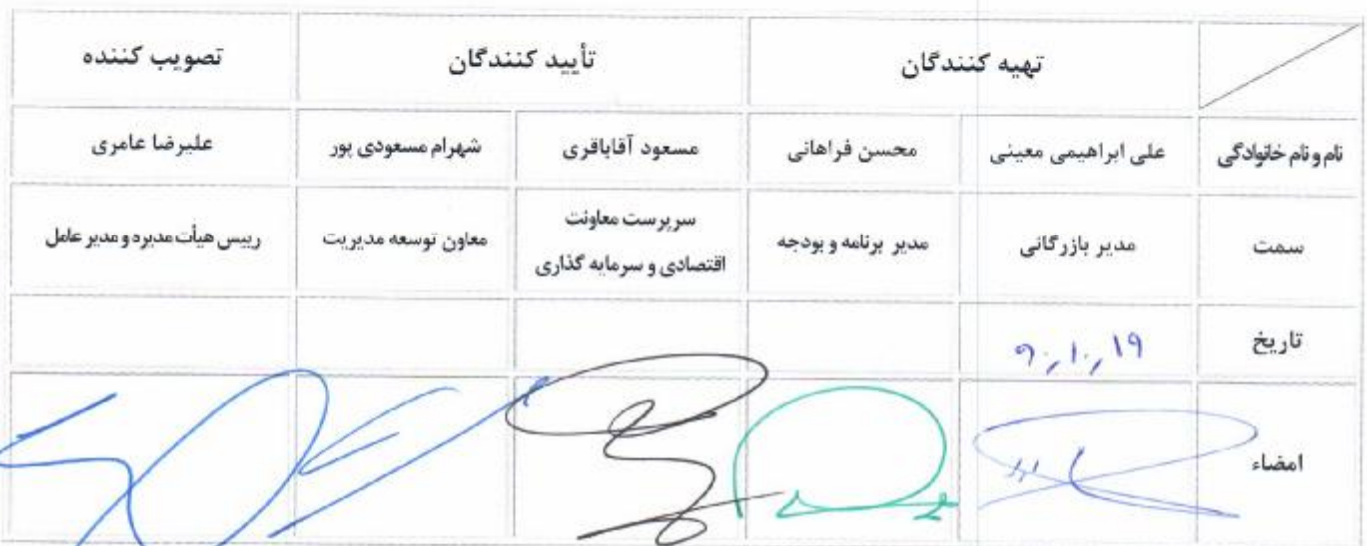 تهیه کنندگان تأیید کنندگان تصویب کننده
نام و نام خانوادگی علی ابراهیمی معینی محسن فراهانی مسعود آقاباقری شهرام مسعودی پور علیرضا عامری
سمت مدیر بازرگانی مدیر برنامه و بودجه سرپرست معاونت معاون توسعه مدیریت رییس هیأت مدیره و مدیر عامل
اقتصادی و سرمایه گذاری
تاریخ ۹۰,۱۰,۱۹
امضاء